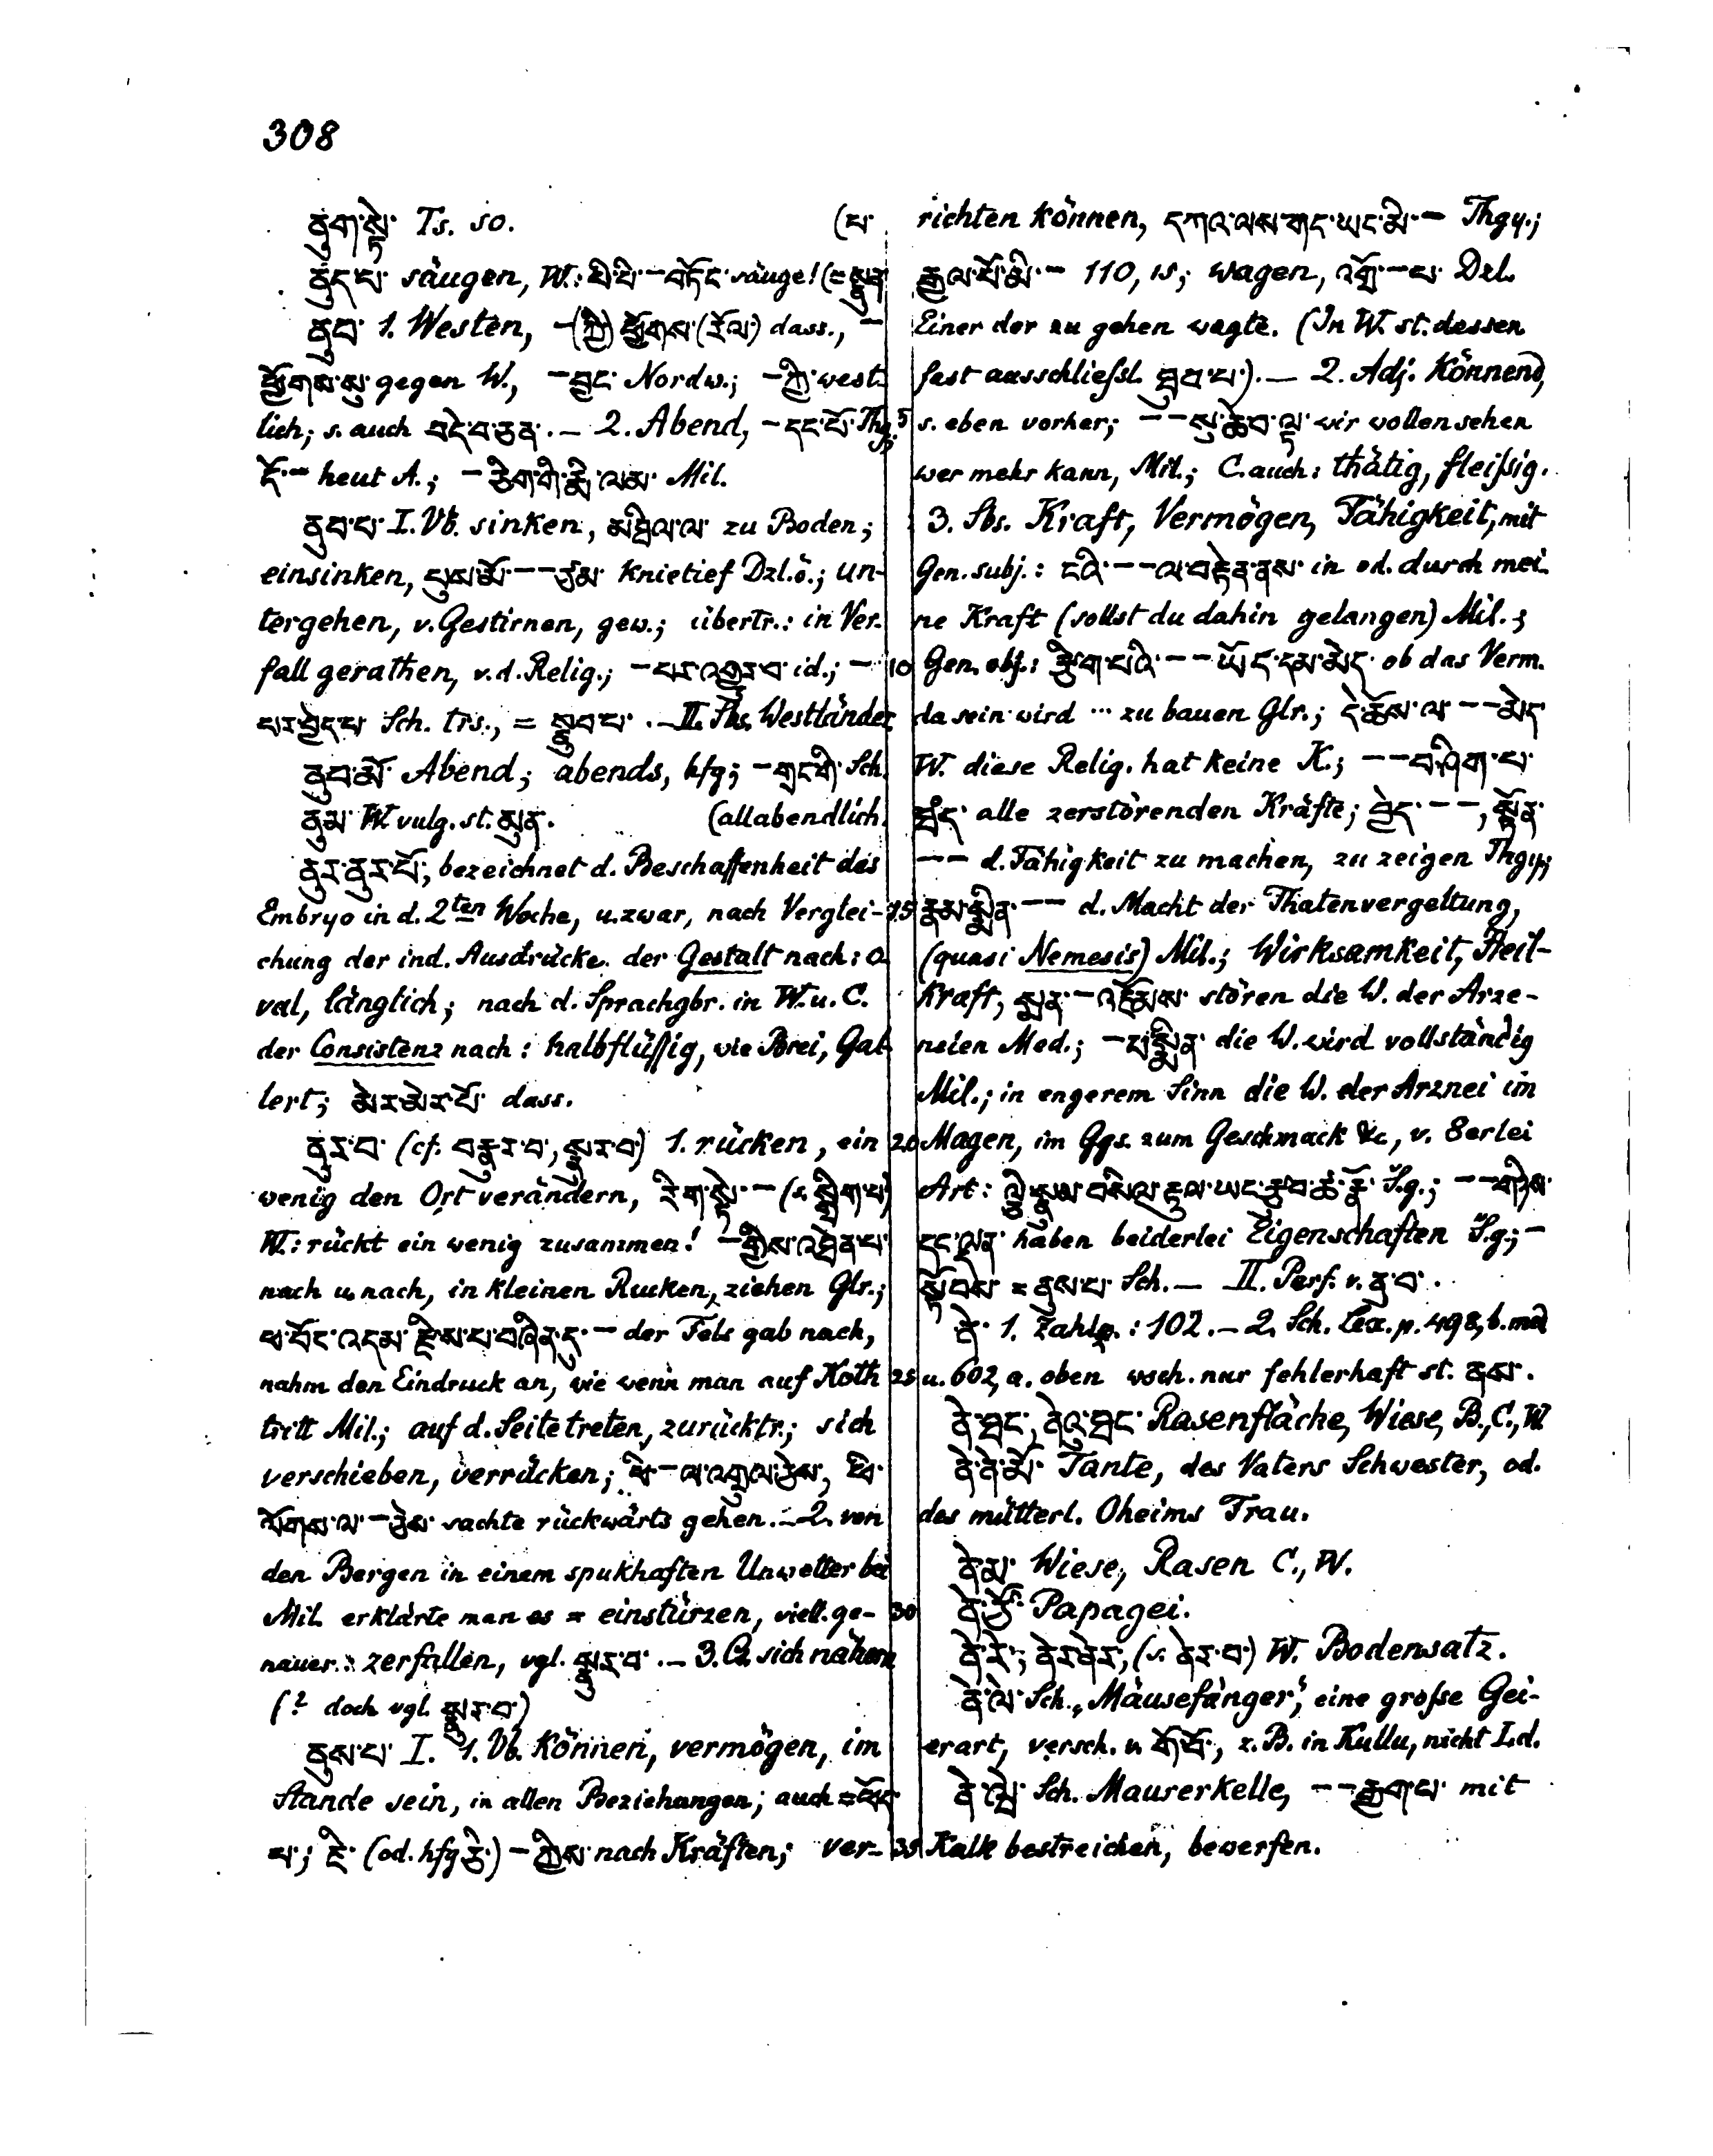 308
ནུག་སྟེ་ Ts. so. (པ་
ནུད་པ་ säugen, W.: པི་པི་ – བཏོང་ säuge! (= སྣུན
ནུབ་ 1. Westen, – (ཀྱི་) ཕྱོགས་ (རོལ་) dass., –
ཕྱོགས་སུ་ gegen W., – བྱང་ Nordw.; – ཀྱི་ west-
lich; s. auch བདེ་བ་ཅན་. – 2. Abend, – དང་པོ་ Thgy.
དོ་ – heut A.; – ཅིག་གི་རྨི་ལམ་ Mil.
ནུབ་པ་ I. Vb. sinken, མཐིལ་ལ་ zu Boden;
einsinken, པུས་མོ་ – – ཙམ་ knietief Dzl. ö.; un-
tergehen, v. Gestirnen, gew.; übertr.: in Ver-
fall gerathen, v. d. Relig.; – པར་འགྱུར་བ་ id.; –
པར་བྱེད་པ་ Sch. trs., = སྣུབ་པ་. – II. Sbs. Westländer
ནུབ་མོ་ Abend; abends, hfg; – གྲངས་ Sch.
ནུམ་ W. vulg. st. མུན་. (allabendlich.
ནུར་ནུར་པོ་; bezeichnet d. Beschaffenheit des
Embryo in d. 2ten Woche, u. zwar, nach Verglei-
chung der ind. Ausdrücke. der Gestalt nach: o-
val, länglich; nach d. Sprachgbr. in W. u. C.
der Consistenz nach: halbflüssig, wie Brei, Gal-
lert; མེར་མེར་པོ་ dass.
ནུར་བ་ (cf. བརྣུར་བ་, སྣུར་བ་) 1. rücken, ein
wenig den Ort verändern, རིག་སྟེ་ – (s. སྒྲིག་པ་)
W.: rückt ein wenig zusammen! – གྱིས་འཐེན་པ་
nach u. nach, in kleinen Rucken, ziehen Glr.;
ཕ་བོང་འདམ་རྫིས་པ་བཞིན་དུ་ – der Fels gab nach,
nahm den Eindruck an, wie wenn man auf Koth
tritt Mil.; auf d. Seite treten, zurücktr.; sich
verschieben, verrücken; ཕི་ – ལ་འགུལ་ཅེས་, ཕི་
ལོགས་ལ་ – ཅེས་ sachte rückwärts gehen. – 2. von
den Bergen in einem spukhaften Unwetter bei
Mil. erklärte man es = einstürzen, viell. ge-
nauer: zerfallen, vgl. སྣུར་བ་. – 3. Cs. sich nähern
(? doch vgl. སྣུར་བ་)
ནུས་པ་ I. 1. Vb. können, vermögen, im
Stande sein, in allen Beziehungen; auch = ཕོད་
པ་; ཇི་ (od. hfg ཅི་) – ཀྱིས་ nach Kräften; ver-
richten können, དཀའ་ལས་གང་ཡང་མི་ – Thgy.;
རྒྱལ་པོ་མི་ – 110, 15; wagen, འགྲོ་ – པ་ Dzl.
Einer der zu gehen wagte. (In W. st. dessen
fast ausschließl. ཐུབ་པ་). – 2. Adj. könnend,
5 s. eben vorher; – – སུ་ཆེ་བ་ལྟ་ wir wollen sehen
wer mehr kann, Mil.; C. auch: thätig, fleißig.
3. Sbs. Kraft, Vermögen, Fähigkeit, mit
Gen. subj.: ངའི་ – – ལ་བརྟེན་ནས་ in od. durch mei-
ne Kraft (sollst du dahin gelangen) Mil.;
10 Gen. obj.: རྩིག་པའི་ – – ཡོད་དམ་མེད་ ob das Verm.
da sein wird … zu bauen Glr.; དེ་ཆོས་ལ་ – – མེད་
W. diese Relig. hat keine K.; – – བཤིག་པ་
བྱེད་ alle zerstörenden Kräfte; བྱེད་ – –, སྟོན་
– – d. Fähigkeit zu machen, zu zeigen Thgy.;
15 རྣམ་སྨིན་ – – d. Macht der Thatenvergeltung,
(quasi Nemesis) Mil.; Wirksamkeit, Heil-
kraft, སྨན་ – འཇོམས་ stören die W. der Arze-
neien Med.; – པ་སྨིན་ die W. wird vollständig
Mil.; in engerem Sinn die W. der Arznei im
20 Magen, im Ggs. zum Geschmack &c, v. 8erlei
Art: ལྕི་སྣུམ་བསིལ་རྟུལ་ཡང་རྩུབ་ཚ་རྣོ་ S.g.; – – གཉིས་
དང་ལྡན་ haben beiderlei Eigenschaften S.g.; –
སྟོབས་ = ནུས་པ་ Sch. – II. Perf. v. ནུ་བ་.
ནེ་ 1. Zahlz.: 102. – 2. Sch. Lex. p. 498, b. med
25 u. 602, a. oben woch. nur fehlerhaft st. ནས་.
ནེ་ཐང་, ནེའུ་ཐང་ Rasenfläche, Wiese, B., C., W
ནེ་ནེ་མོ་ Tante, des Vaters Schwester, od.
des mütterl. Oheims Frau.
ནེ་མ་ Wiese, Rasen C., W.
30 ནེ་ཙོ་ Papagei.
ནེ་རེ་; ནེར་ནེར་, (s. ནེར་བ་) W. Bodensatz.
ནེ་ལེ་ Sch. „Mäusefänger“, eine große Gei-
erart, versch. v. གོ་བོ་, z. B. in Kullu, nicht I. d.
ནེ་ལྡེ་ Sch. Maurerkelle, – – རྒྱག་པ་ mit
35 Kalk bestreichen, bewerfen.